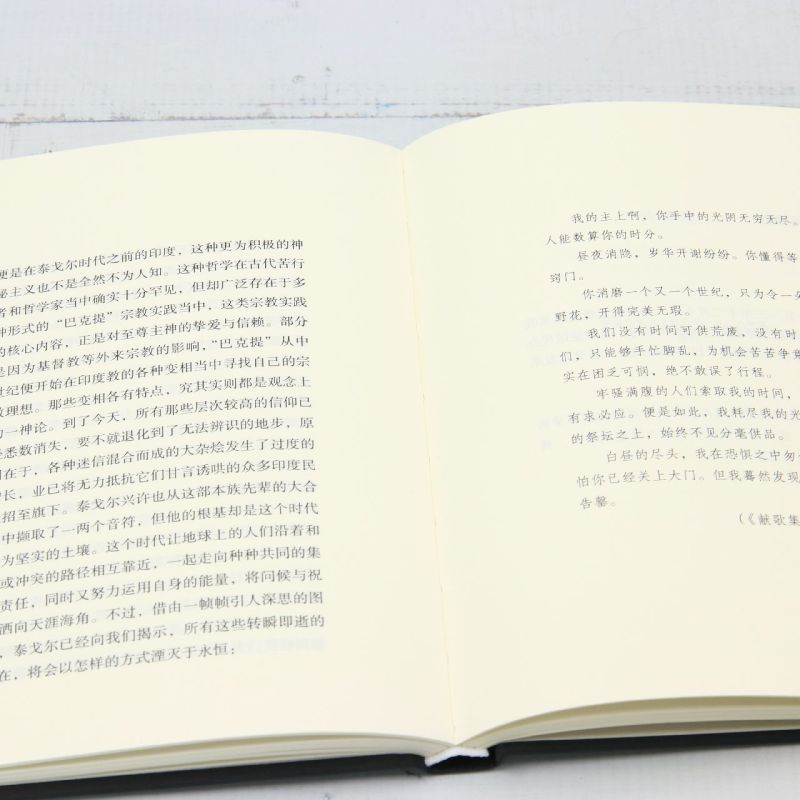 便是在泰戈尔时代之前的印度，这种更为积极的神
秘主义也不是全然不为人知。这种哲学在古代苦行
者和哲学家当中确实十分罕见，但却广泛存在于多
种形式的“巴克提”宗教实践当中，这类宗教实践
的核心内容，正是对至尊主神的挚爱与信赖。部分
是因为基督教等外来宗教的影响，“巴克提”从中
世纪便开始在印度教的各种变相当中寻找自己的宗
教理想。那些变相各有特点，究其实则都是观念上
的一神论。到了今天，所有那些层次较高的信仰已
经悉数消失，要不就退化到了无法辨识的地步，原
因在于，各种迷信混合而成的大杂烩发生了过度的
长，业已将无力抵抗它们甘言诱哄的众多印度民
招至旗下。泰戈尔兴许也从这部本族先辈的大合
中撷取了一两个音符，但他的根基却是这个时代
为坚实的土壤。这个时代让地球上的人们沿着和
或冲突的路径相互靠近，一起走向种种共同的集
责任，同时又努力运用自身的能量，将问候与祝
洒向天涯海角。不过，借由一帧帧引人深思的图
，泰戈尔已经向我们揭示，所有这些转瞬即逝的
在，将会以怎样的方式湮灭于永恒：
我的主上啊，你手中的光阴无穷无尽。
人能数算你的时分。
昼夜消隐，岁华开谢纷纷。你懂得等
窍门。
你消磨一个又一个世纪，只为令一
野花，开得完美无瑕。
我们没有时间可供荒废，没有时
们，只能够手忙脚乱，为机会苦苦争
实在困乏可悯，绝不敢误了行程。
牢骚满腹的人们索取我的时间，
有求必应。便是如此，我耗尽我的光
的祭坛之上，始终不见分毫供品。
白昼的尽头，我在恐惧之中匆
怕你已经关上大门。但我蓦然发现
告罄。
（《献歌集